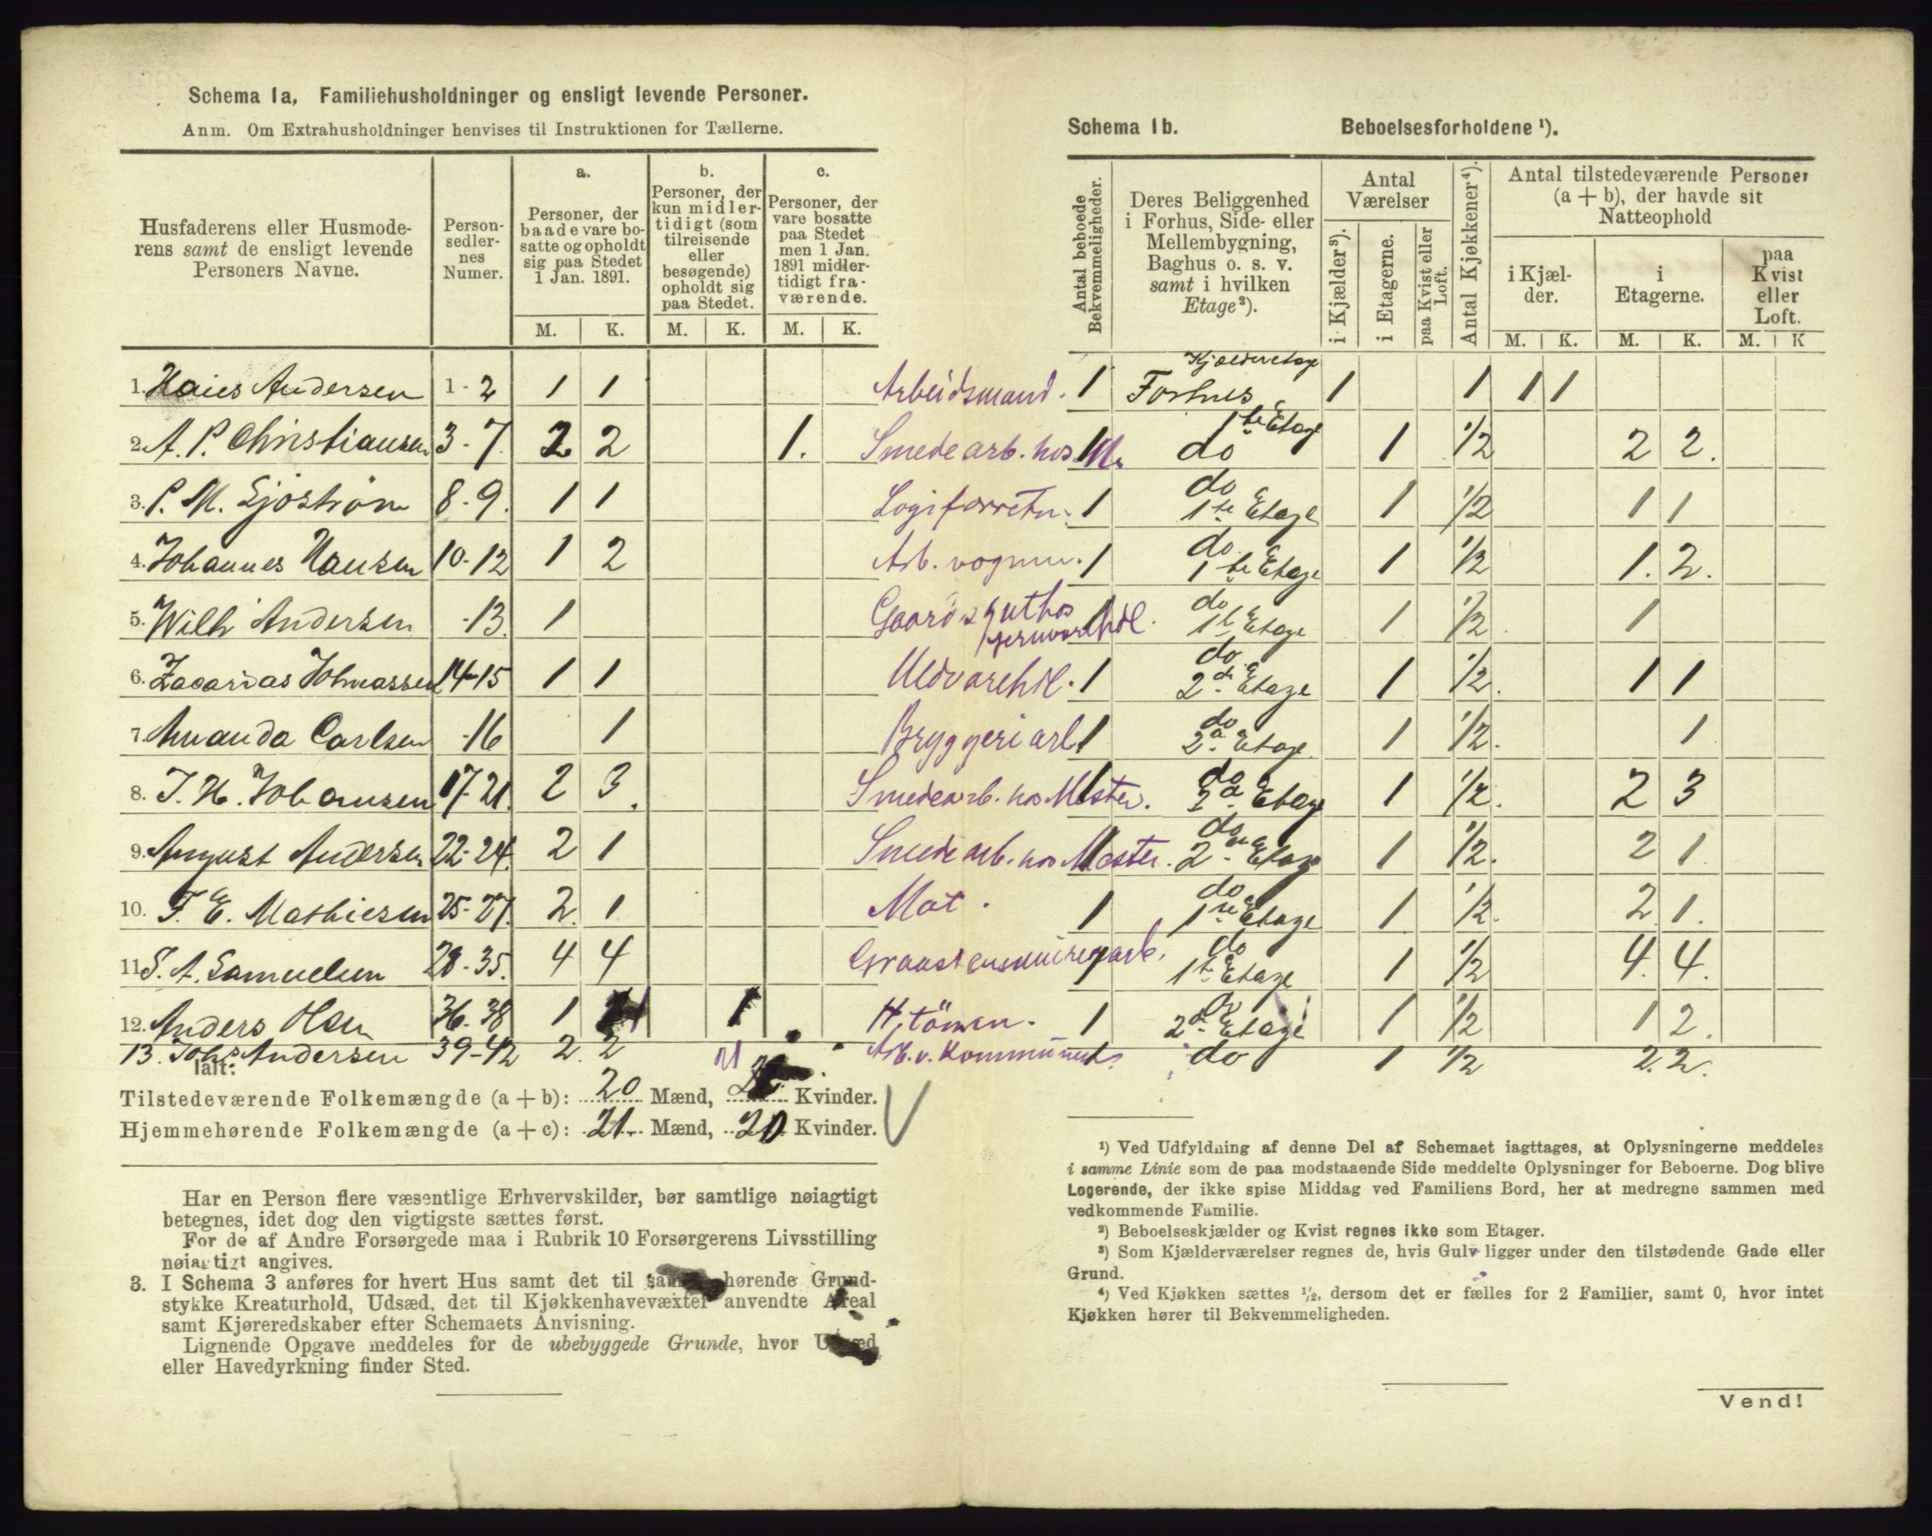 Schema 1a, Familiehusholdninger og ensligt levende Personer.
Anm. Om Extrahusholdninger henvises til Instruktionen for Tællerne.
Husfaderens eller Husmoderens samt de ensligt levende Personers Navne.
Person-sedlernes Numer.
a. Personer, der baade vare bosatte og opholdt sig paa Stedet 1 Jan. 1891. M. K.
b. Personer, der kun midlertidigt (som tilreisende eller besøgende) opholdt sig paa Stedet. M. K.
c. Personer, der vare bosatte paa Stedet men 1 Jan. 1891 midlertidigt fraværende. M. K.
1. Hans Andersen 1-2 1 1 Arbeidsmand.
2. A. P. Christiansen 3-7. 2 2 1. Smedearb. hos M.
3. P. M. Sjöström 8-9. 1 1 Logiforretn.
4. Johannes Hansen 10-12 1 2 Arb. vognm.
5. Wilh Andersen -13. 1 Gaardsgut hos jernvarehdl.
6. Zacarias Johnassen 14-15 1 1 Uldvarehdl.
7. Amanda Carlsen -16 1 Bryggeriarb
8. J. H. Johansen 17-21. 2 3. Smedearb. hos Mester.
9. August Andersen 22-24. 2 1 Smedearb. hos Mester.
10. F. E. Mathiesen 25-27. 2. 1 Mat.
11. S. A. Samuelsen 28-35. 4 4 Graastensmureragarb.
12. Anders Olsen 36-38 1 1 1 H. tömm.
13. Johs Andersen 39-42 2. 2 Arb. v. Kommunen
Ialt:
21
Tilstedeværende Folkemængde (a + b): 20 Mænd, Kvinder.
Hjemmehørende Folkemængde (a + c): 21 Mænd, 20 Kvinder.
Har en Person flere væsentlige Erhvervskilder, bør samtlige nøiagtigt
betegnes, idet dog den vigtigste sættes først.
For de af Andre Forsørgede maa i Rubrik 10 Forsørgerens Livsstilling
nøiagtigt angives.
3. I Schema 3 anføres for hvert Hus samt det til samme hørende Grund-
stykke Kreaturhold, Udsæd, det til Kjøkkenhavevæxter anvendte Areal
samt Kjøreredskaber efter Schemaets Anvisning.
Lignende Opgave meddeles for de ubebyggede Grunde, hvor Udsæd
eller Havedyrkning finder Sted.
Schema 1b. Beboelsesforholdene ¹).
Antal beboede Bekvemmeligheder.
Deres Beliggenhed i Forhus, Side- eller Mellembygning, Baghus o. s. v. samt i hvilken Etage²).
Antal Værelser
i Kjælder³).
i Etagerne.
paa Kvist eller Loft.
Antal Kjøkkener⁴).
Antal tilstedeværende Personer (a + b), der havde sit Natteophold
i Kjælder. M. K.
i Etagerne. M. K.
paa Kvist eller Loft. M. K
1 Forhus Kjælderetage 1 1 1 1
1 do 1te Etage 1 1/2 2 2.
1 do 1te Etage 1 1/2 1 1
1 do 1te Etage 1 1/2 1. 2.
1 do 1t Etage 1 1/2. 1
1 do 2den Etage 1 1/2. 1 1
1 do 2d Etage 1 1/2. 1
1 do 2d Etage 1 1/2. 2 3
1 do 2den Etage 1 1/2. 2 1
1 do 1ste Etage 1 1/2. 2. 1.
1 do 1te Etage 1 1/2 4. 4.
1 do 2d Etage 1 1/2 1 2.
1 do 1 1/2 2. 2.
¹) Ved Udfyldning af denne Del af Schemaet iagttages, at Oplysningerne meddeles
i samme Linie som de paa modstaaende Side meddelte Oplysninger for Beboerne. Dog blive
Logerende, der ikke spise Middag ved Familiens Bord, her at medregne sammen med
vedkommende Familie.
²) Beboelseskjælder og Kvist regnes ikke som Etager.
³) Som Kjælderværelser regnes de, hvis Gulv ligger under den tilstødende Gade eller
Grund.
⁴) Ved Kjøkken sættes 1/2, dersom det er fælles for 2 Familier, samt 0, hvor intet
Kjøkken hører til Bekvemmeligheden.
Vend!